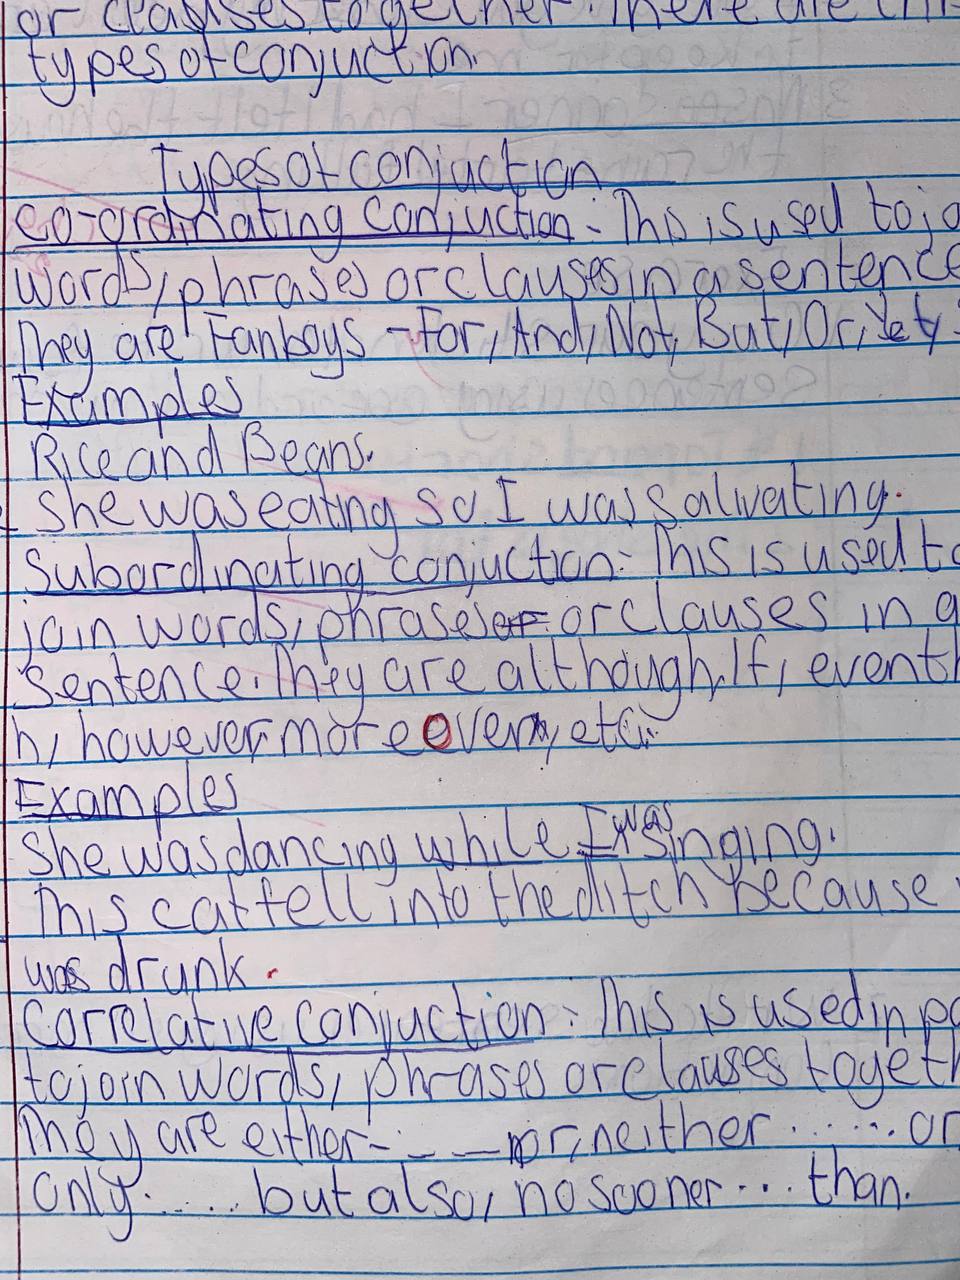 or clauses together. There are
types of conjuction.
Types of conjuction
Co-ordinating Conjuction:- This is used to
words, phrases or clauses in a sentence
They are Fanboys - For, And, Not, But, Or, Yet,
Examples
Rice and Beans.
She was eating so I was salivating.
Subordinating conjuction:- This is used to
join words, phrases or or clauses in a
sentence. They are although, If, event
h, however, moreover, etc.
Examples
She was dancing while I was singing.
This cat fell into the ditch because
was drunk.
Correlative conjuction:- This is used in
to join words, phrases or clauses
They are either- - - or, neither ......
only ...... but also, no sooner ... than.